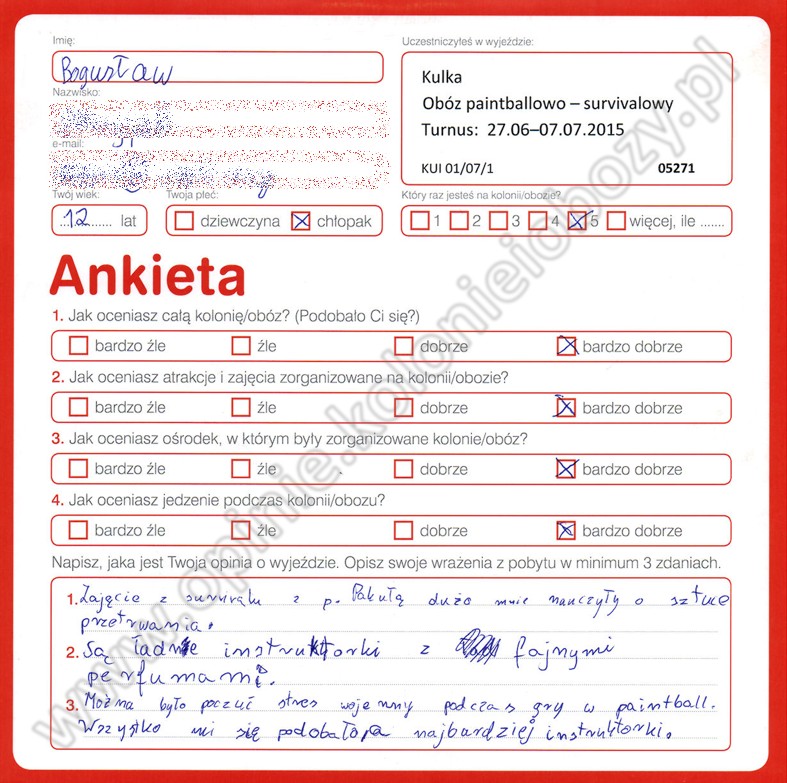 Imię:
Bogusław
Nazwisko:
e-mail:
Twój wiek:
12 lat
Twoja płeć:
dziewczyna chłopak
Uczestniczyłeś w wyjeździe:
Kulka
Obóz paintballowo – survivalowy
Turnus: 27.06–07.07.2015
KUI 01/07/1 05271
Który raz jesteś na kolonii/obozie?
1 2 3 4 5 więcej, ile .......
Ankieta
1. Jak oceniasz całą kolonię/obóz? (Podobało Ci się?)
bardzo źle źle dobrze bardzo dobrze
2. Jak oceniasz atrakcje i zajęcia zorganizowane na kolonii/obozie?
bardzo źle źle dobrze bardzo dobrze
3. Jak oceniasz ośrodek, w którym były zorganizowane kolonie/obóz?
bardzo źle źle dobrze bardzo dobrze
4. Jak oceniasz jedzenie podczas kolonii/obozu?
bardzo źle źle dobrze bardzo dobrze
Napisz, jaka jest Twoja opinia o wyjeździe. Opisz swoje wrażenia z pobytu w minimum 3 zdaniach.
1. Zajęcie z survivalu z p. Pakułą dużo mnie nauczyły o sztuce
przetrwania.
2. Są ładne instruktorki z fajnymi
perfumami.
3. Można było poczuć stres wojenny podczas gry w paintball.
Wszystko mi się podobało, a najbardziej instruktorki.
www.opinie.kolonieiobozy.pl